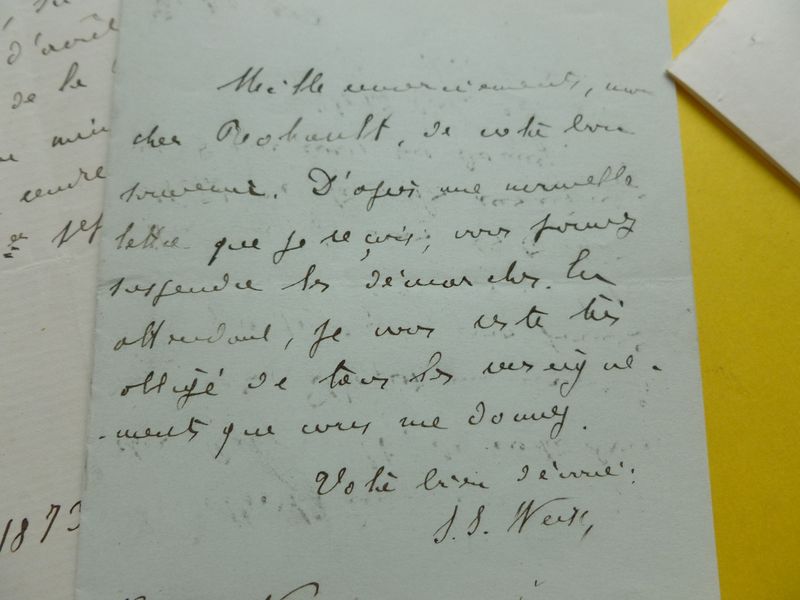 d'avril
de le
Mille remerciements, mon
cher Robault, de votre bon
souvenir. D'après une nouvelle
lettre que je reçois, vous pouvez
suspendre les démarches. En
attendant, je vous reste très
obligé de tous les renseigne-
-ments que vous me donnez.
Votre bien dévoué:
J. J. Weiss
1873